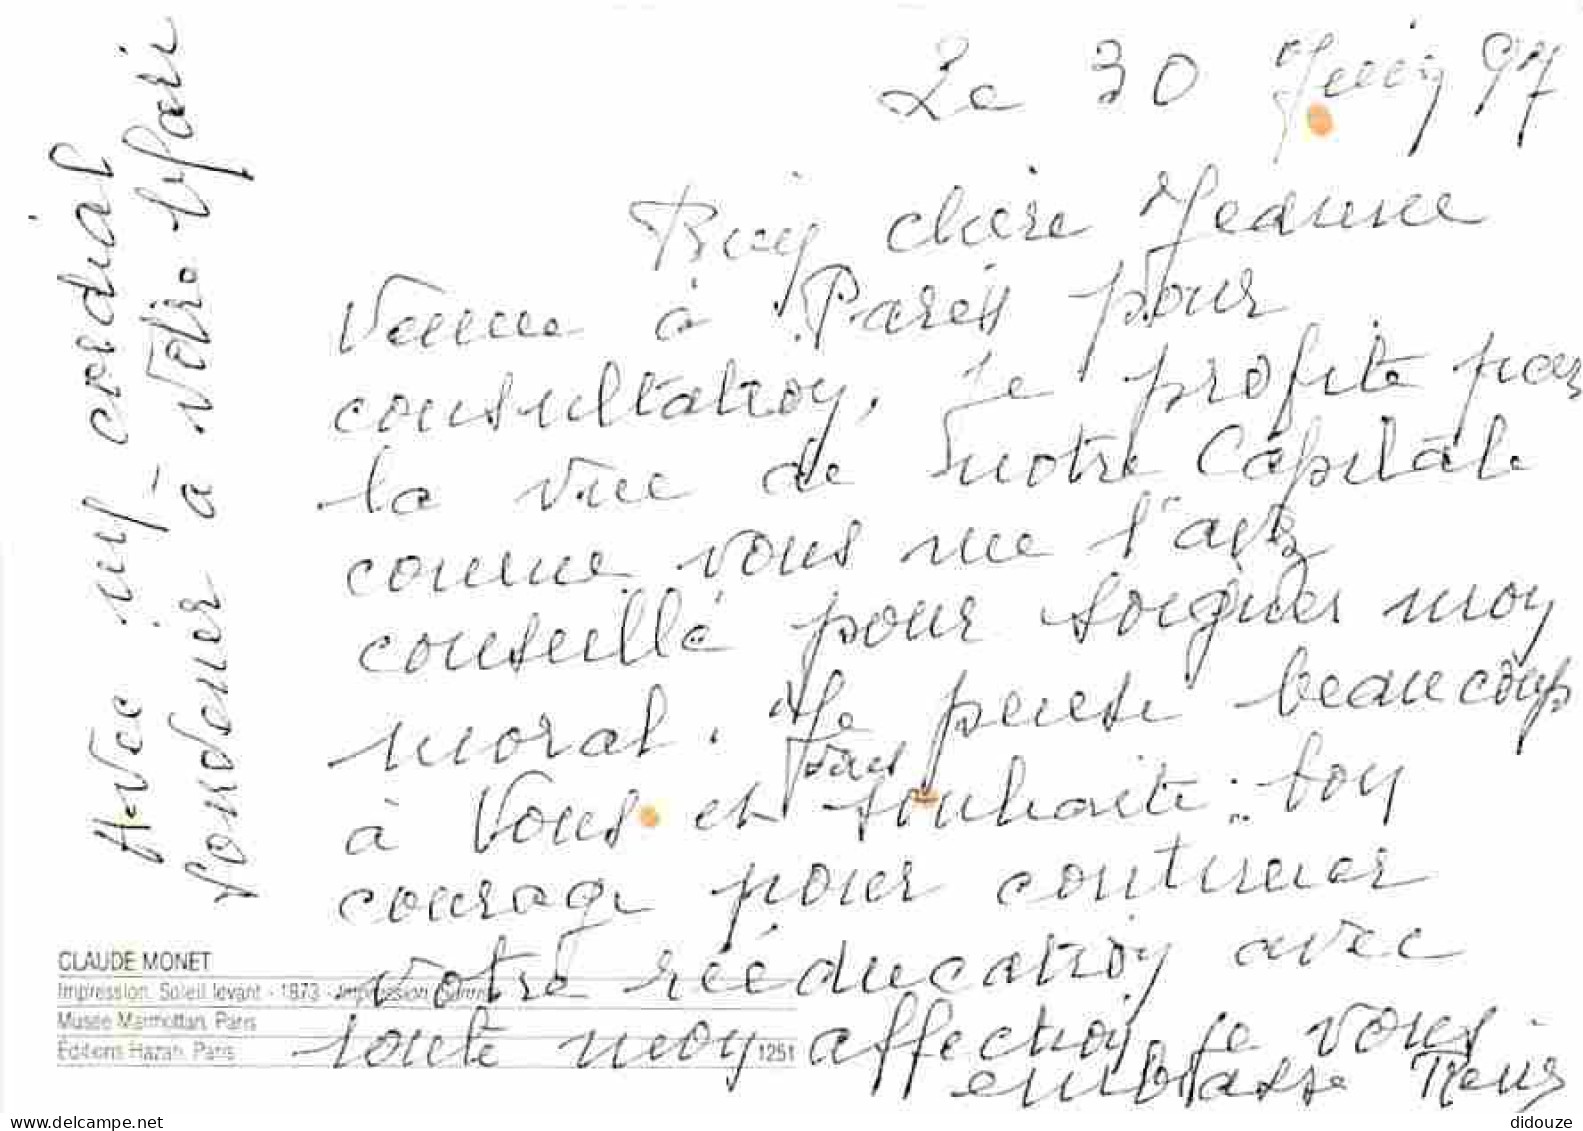 Le 30 Juin 97
Bien chère Jeanne
Venue à Paris pour
consultation, je profite pas
la vue de notre Capitale
comme vous me l'avez
conseillé pour soigner mon
moral. Je pense beaucoup
à Vous et vous souhaite bon
courage pour continuer
votre rééducation avec
toute mon affection je vous
embrasse
Avec un cordial
souvenir à Votre Mari
CLAUDE MONET
Impression, Soleil levant - 1873 - Impression, Sunrise
Musée Marmottan, Paris
Éditions Hazan, Paris 1251
www.delcampe.net
didouze